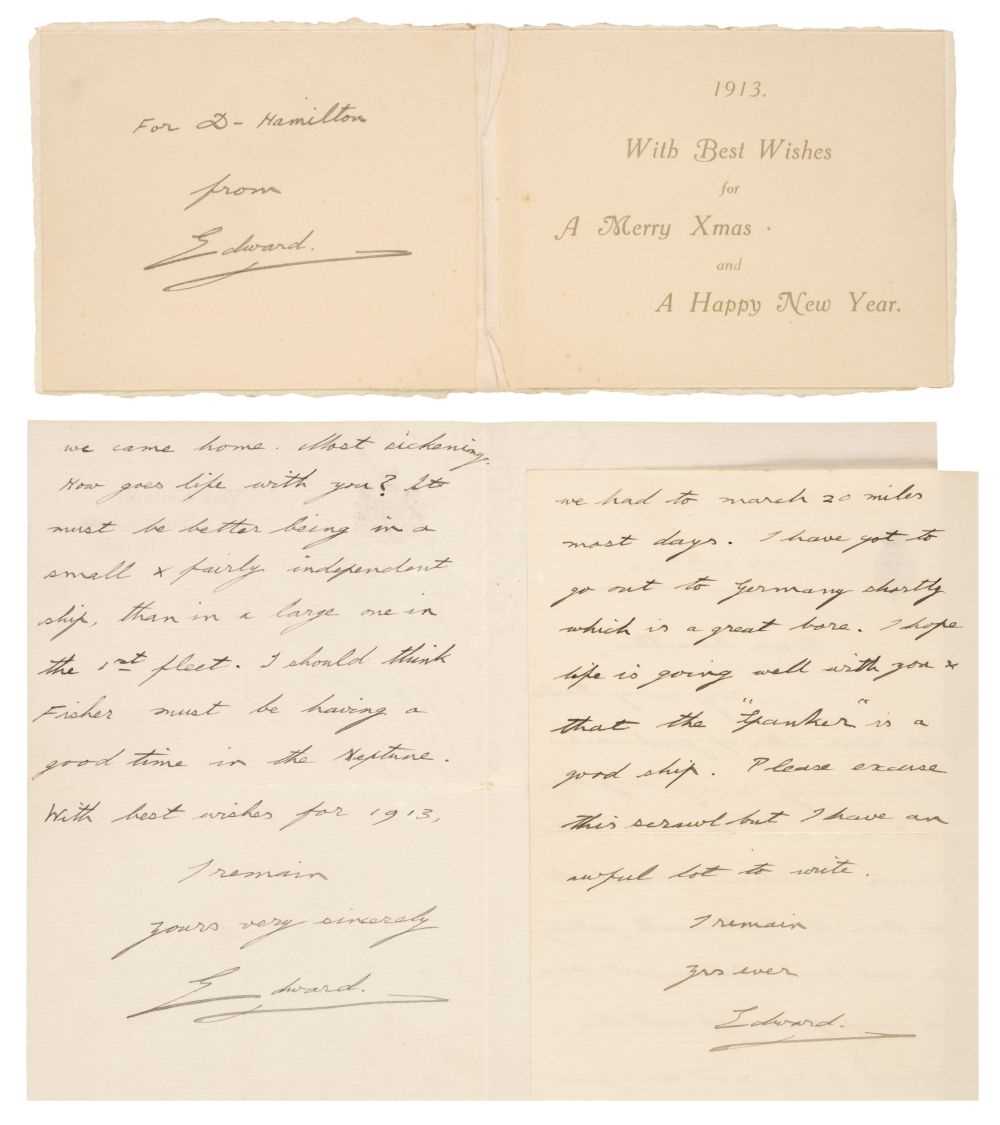 For D- Hamilton
from
Edward.
1913.
With Best Wishes
for
A Merry Xmas.
and
A Happy New Year.
we came home. Most sickening.
How goes life with you? It
must be better being in a
small & fairly independent
ship, than in a large one in
the 1st fleet. I should think
Fisher must be having a
good time in the Neptune.
With best wishes for 1913,
I remain
yours very sincerely
Edward.
we had to march 20 miles
most days. I have got to
go out to Germany shortly
which is a great bore. I hope
life is going well with you &
that the "Spanker" is a
good ship. Please excuse
this scrawl but I have an
awful lot to write.
I remain
yrs ever
Edward.